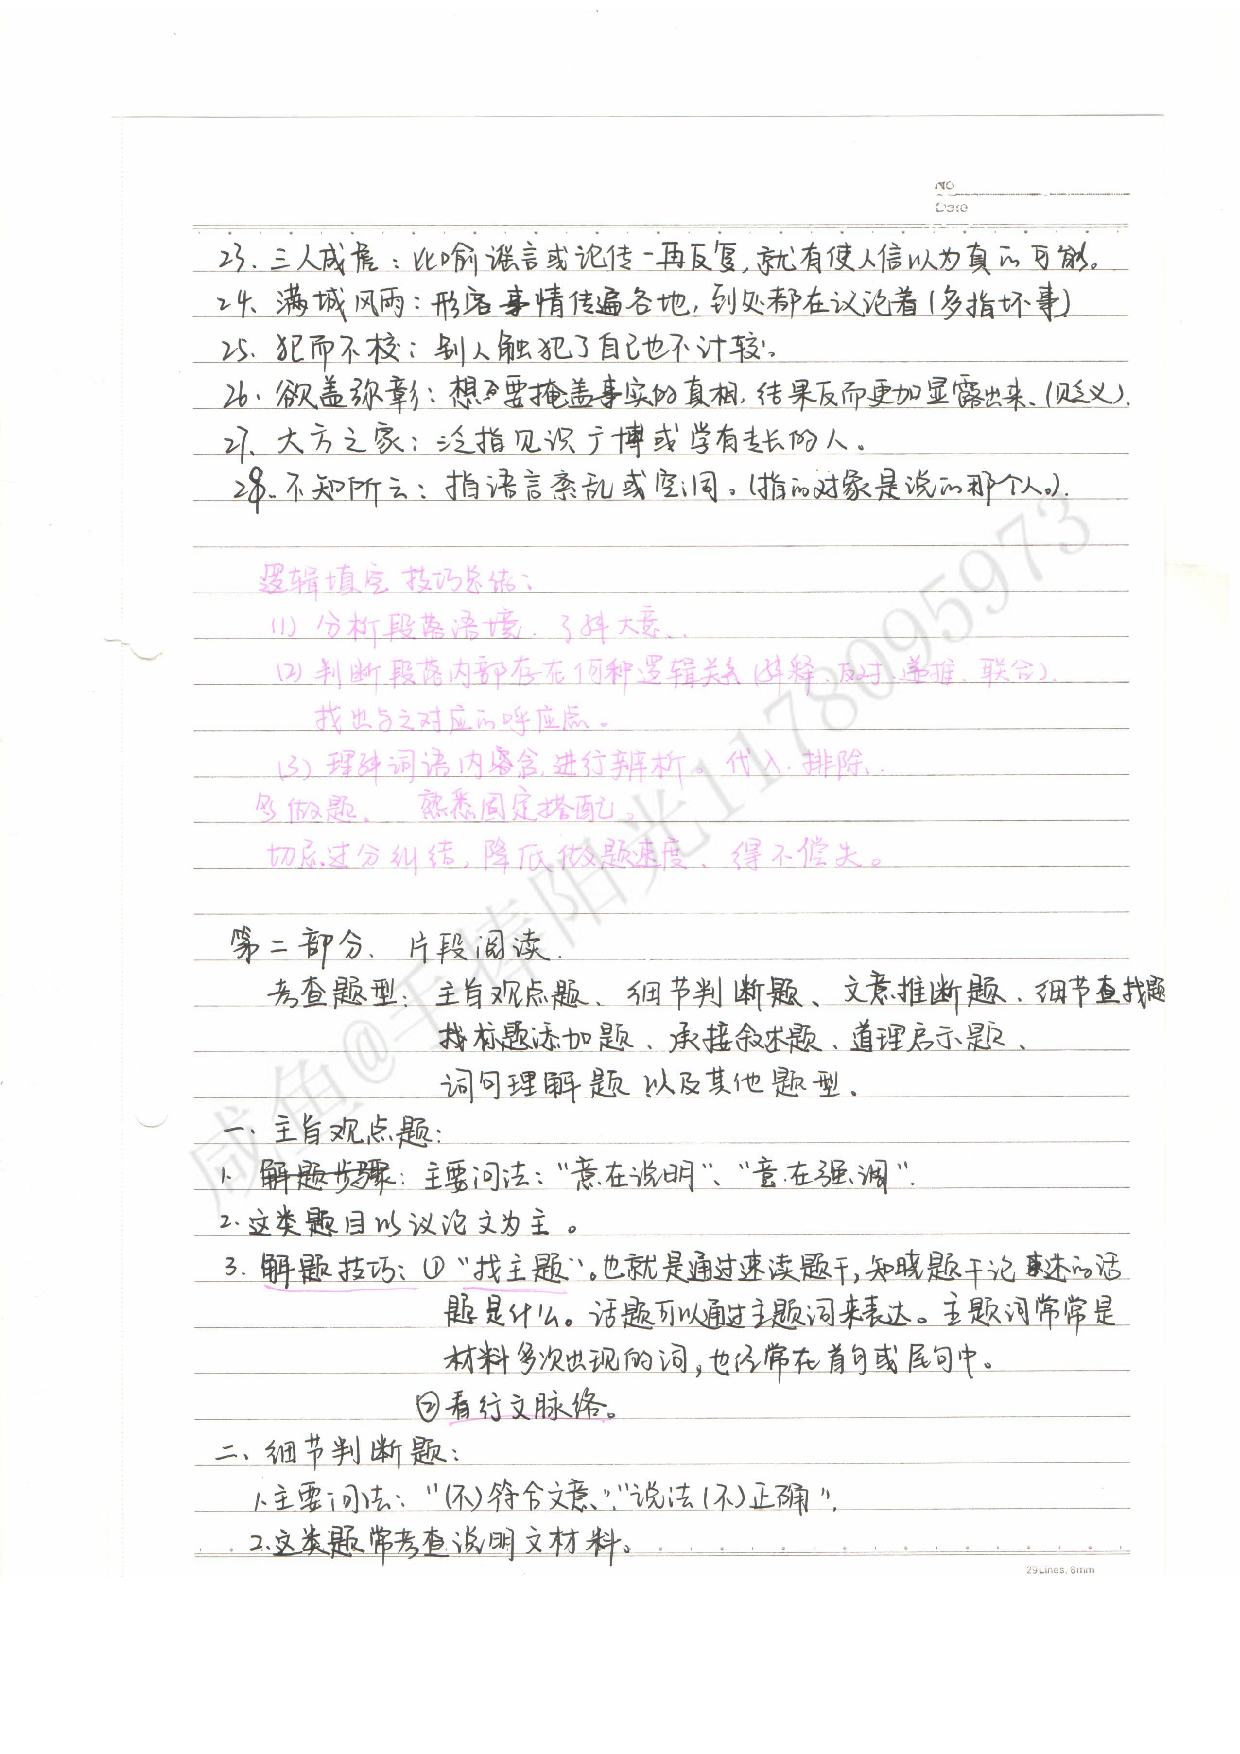 NO
Date
23. 三人成虎：比喻谣言或讹传一再反复，就有使人信以为真的可能。
24. 满城风雨：形容事情传遍各地，到处都在议论着(多指坏事)
25. 犯而不校：别人触犯了自己也不计较。
26. 欲盖弥彰：想要掩盖事实的真相，结果反而更加显露出来、(贬义).
27. 大方之家：泛指见识广博或学有专长的人。
28. 不知所云：指语言紊乱或空洞。(指的对象是说的那个人。).
逻辑填空 技巧总结：
(1) 分析段落语境、了解大意、
(2) 判断段落内部存在何种逻辑关系(解释、反对、递推、联合).
找出与之对应的呼应点。
(3) 理解词语内容含,进行辨析。代入、排除、
多做题、 熟悉固定搭配，
切忌过分纠结，降低做题速度、得不偿失。
第二部分、片段阅读.
考查题型：主旨观点题、细节判断题、文意推断题、细节查找题
找标题添加题、承接叙述题、道理启示题、
词句理解题以及其他题型.
一、主旨观点题：
1. 解题步骤：主要问法：“意在说明”、“意在强调”.
2. 这类题目以议论文为主。
3. 解题技巧：① “找主题”。也就是通过速读题干，知晓题干论述的话
题是什么。话题可以通过主题词来表达。主题词常常是
材料多次出现的词，也经常在首句或尾句中。
②看行文脉络。
二、细节判断题：
1. 主要问法：“(不)符合文意”“说法(不)正确”.
2. 这类题常考查说明文材料。
29Lines, 8mm
咸鱼@手捧阳光1178095973